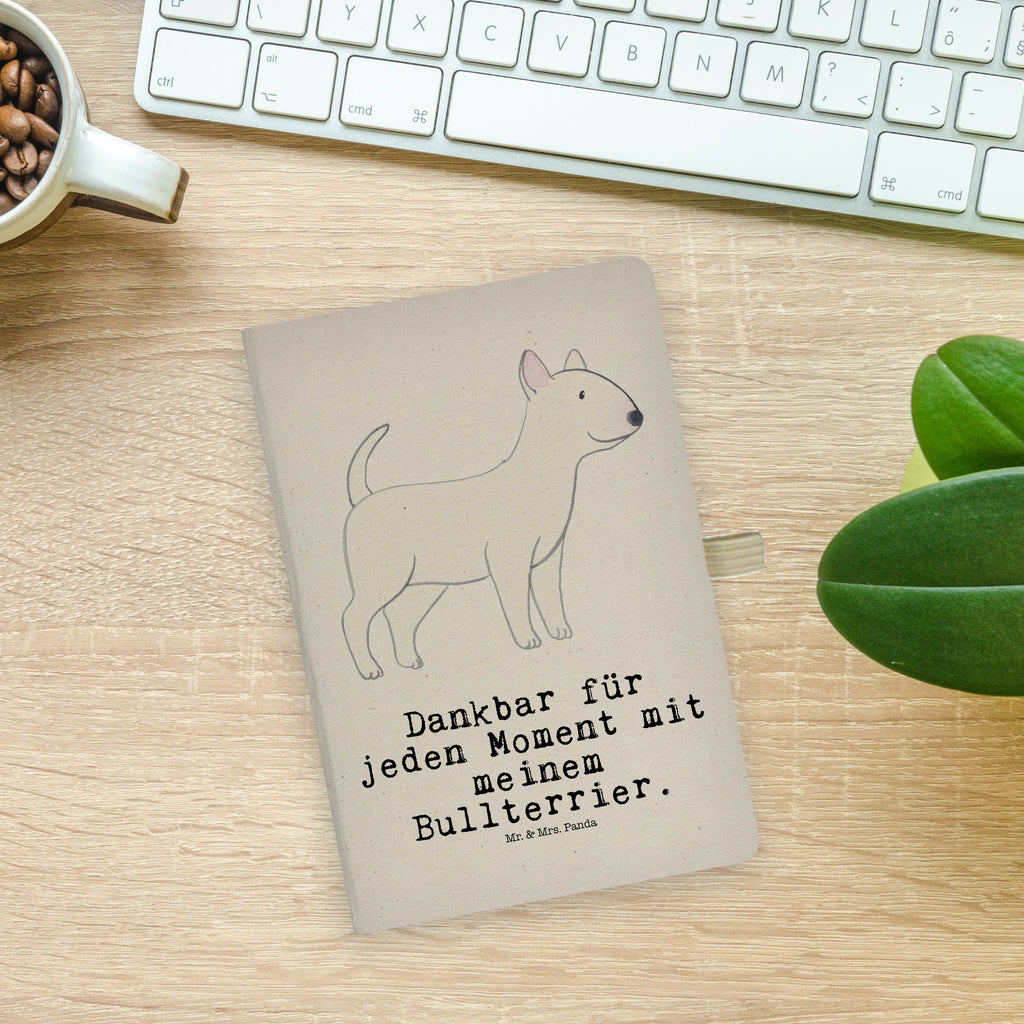 Y X C V B N M J K L
ctrl alt cmd ⌘ ⌘ cmd
Dankbar für
jeden Moment mit
meinem
Bullterrier.
Mr. & Mrs. Panda